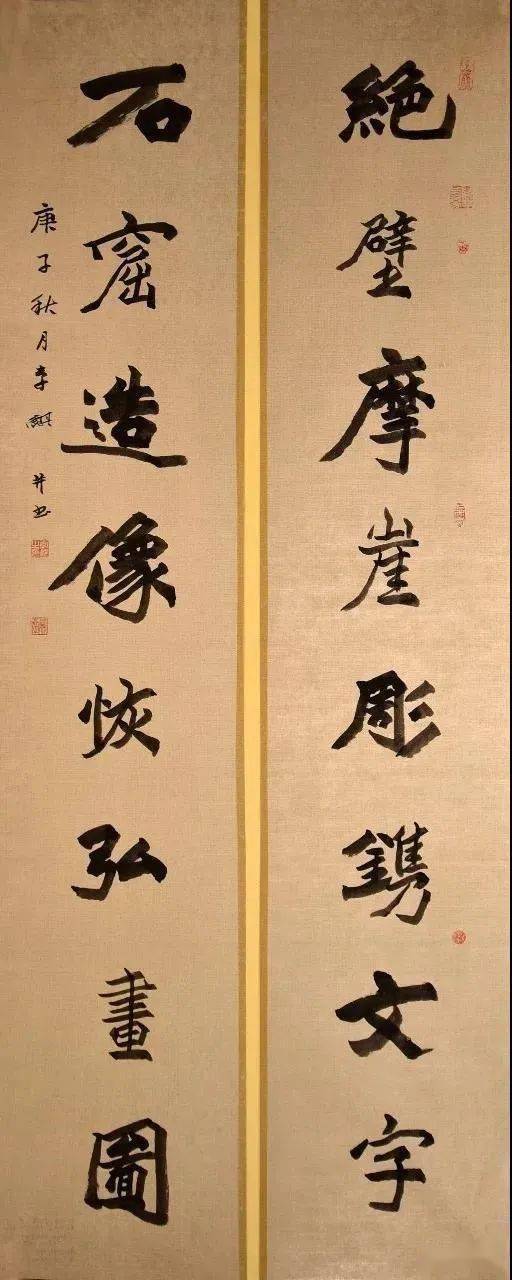 絕壁摩崖彫鐫文字
石窟造像恢弘畫圖
庚子秋月李麒并书